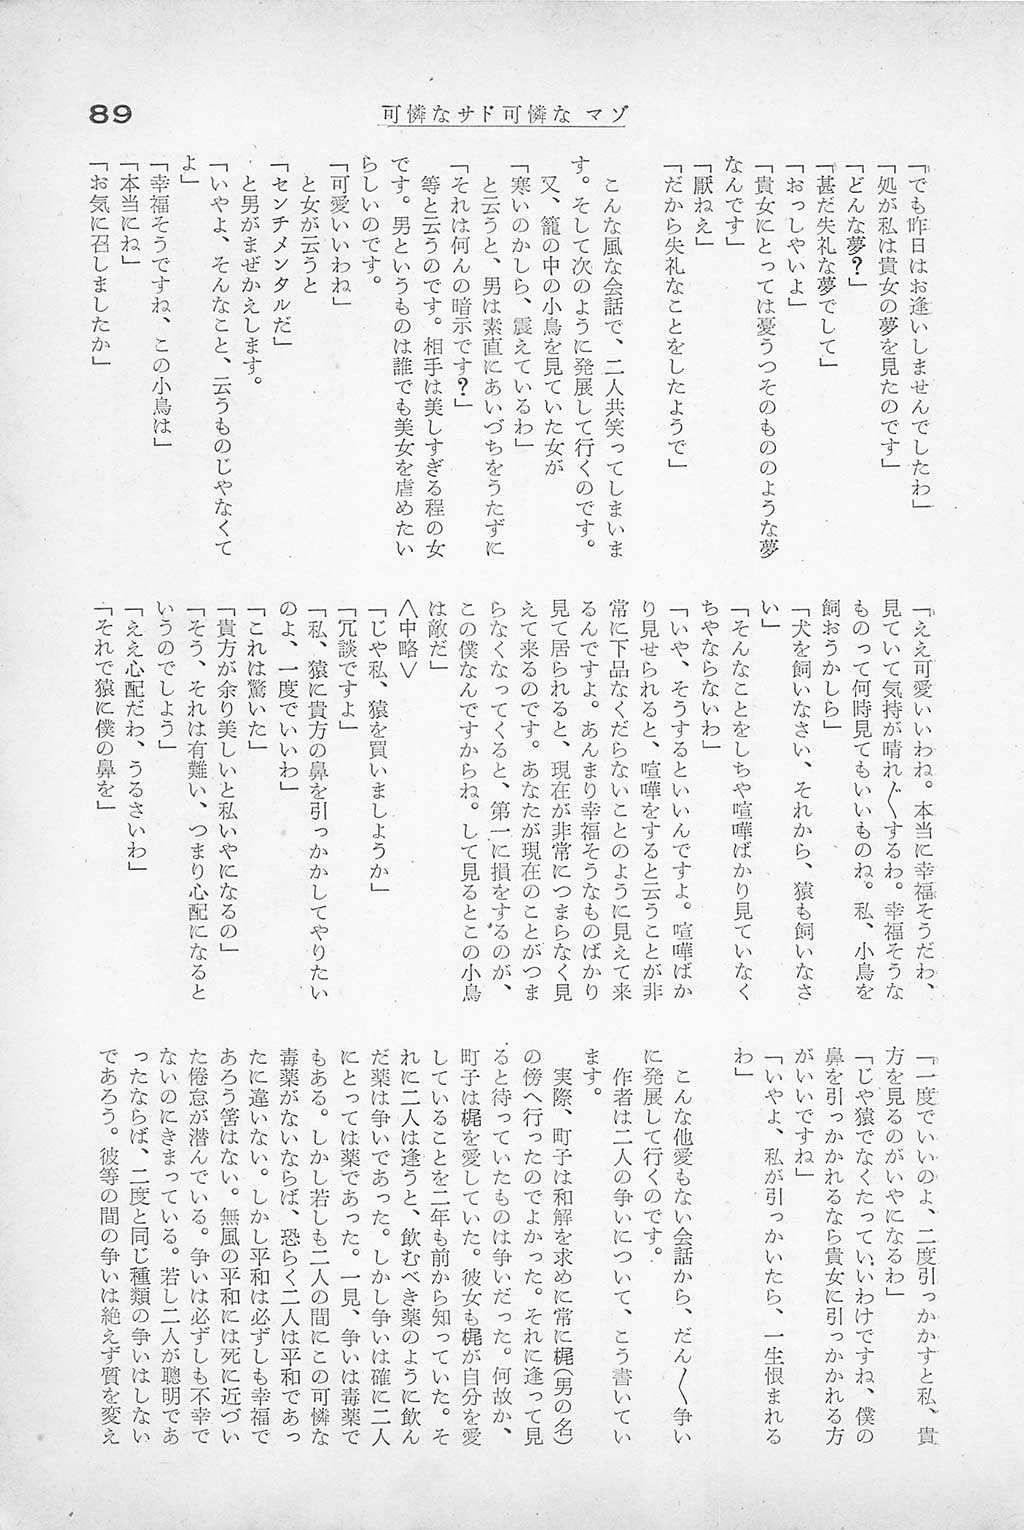 89
可憐なサド可憐な マゾ
『でも昨日はお逢いしませんでしたわ」
「処が私は貴女の夢を見たのです」
「どんな夢？」
「甚だ失礼な夢でして」
「おっしやいよ」
「貴女にとっては憂うつそのもののような夢
なんです」
「厭ねえ」
「だから失礼なことをしたようで」
こんな風な会話で、二人共笑ってしまいま
す。そして次のように発展して行くのです。
又、籠の中の小鳥を見ていた女が
「寒いのかしら、震えているわ」
と云うと、男は素直にあいづちをうたずに
「それは何んの暗示です？」
等と云うのです。相手は美しすぎる程の女
です。男というものは誰でも美女を虐めたい
らしいのです。
「可愛いいわね」
と女が云うと
「センチメンタルだ」
と男がまぜかえします。
「いやよ、そんなこと、云うものじゃなくて
よ」
「幸福そうですね、この小鳥は」
「本当にね」
「お気に召しましたか」
「ええ可愛いいわね。本当に幸福そうだわ、
見ていて気持が晴れ〴〵するわ。幸福そうな
ものって何時見てもいいものね。私、小鳥を
飼おうかしら」
「犬を飼いなさい、それから、猿も飼いなさ
い」
「そんなことをしちや喧嘩ばかり見ていなく
ちやならないわ」
「いや、そうするといいんですよ。喧嘩ばか
り見せられると、喧嘩をすると云うことが非
常に下品なくだらないことのように見えて来
るんですよ。あんまり幸福そうなものばかり
見て居られると、現在が非常につまらなく見
えて来るのです。あなたが現在のことがつま
らなくなってくると、第一に損をするのが、
この僕なんですからね。して見るとこの小鳥
は敵だ」
＜中略＞
「じや私、猿を買いましようか」
「冗談ですよ」
「私、猿に貴方の鼻を引っかかしてやりたい
のよ、一度でいいわ」
「これは驚いた」
「貴方が余り美しいと私いやになるの」
「そう、それは有難い、つまり心配になると
いうのでしよう」
「ええ心配だわ、うるさいわ」
「それで猿に僕の鼻を」
『一度でいいのよ、二度引っかかすと私、貴
方を見るのがいやになるわ」
「じや猿でなくたっていいわけですね、僕の
鼻を引っかかれるなら貴女に引っかかれる方
がいいですね」
「いやよ、私が引っかいたら、一生恨まれる
わ」
こんな他愛もない会話から、だん〳〵争い
に発展して行くのです。
作者は二人の争いについて、こう書いてい
ます。
実際、町子は和解を求めに常に梶（男の名）
の傍へ行ったのでよかった。それに逢って見
ると待っていたものは争いだった。何故か、
町子は梶を愛していた。彼女も梶が自分を愛
していることを二年も前から知っていた。そ
れに二人は逢うと、飲むべき薬のように飲ん
だ薬は争いであった。しかし争いは確に二人
にとっては薬であった。一見、争いは毒薬で
もある。しかし若しも二人の間にこの可憐な
毒薬がないならば、恐らく二人は平和であっ
たに違いない。しかし平和は必ずしも幸福で
あろう筈はない。無風の平和には死に近づい
た倦怠が潜んでいる。争いは必ずしも不幸で
ないのにきまっている。若し二人が聰明であ
ったならば、二度と同じ種類の争いはしない
であろう。彼等の間の争いは絶えず質を変え